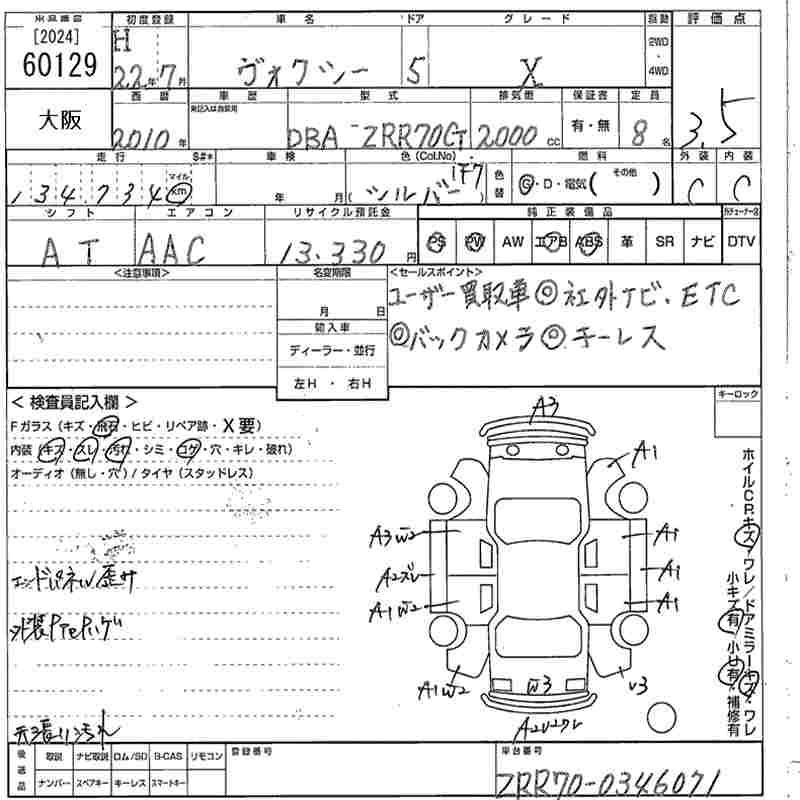 初度登録 車名 ドア グレード 駆動 評価点
[2024] H 2WD
60129 22年7月 ヴォクシー 5 X ・ 4WD 3.5
西暦 車歴 型式 排気量 保証書 定員
大阪 2010年 未記入は自家用 DBA-ZRR70G 2000cc 有・無 8名
走行 S#* 車検 色(Col.No) 燃料 外装 内装
134734 マイル km 年 月 (シルバー 1F7) 色替 G・D・電気( その他 ) C C
シフト エアコン リサイクル預託金 純正装備品
AT AAC 13.330円 PS PW AW エアB ABS 革 SR ナビ DTV
<注意事項> 名変期限 <セールスポイント>
月 日 ユーザー買取車◎社外ナビ、ETC
輸入車 ◎バックカメラ◎キーレス
ディーラー・並行
左H・右H
< 検査員記入欄 > キーロック
Fガラス(キズ・飛石・ヒビ・リペア跡・X要)
内装(キズ・スレ・汚れ・シミ・コゲ・穴・キレ・破れ)
オーディオ(無し・穴)/タイヤ(スタッドレス)
エンドパネル歪サ
天張り汚れ
A3
A1
A3W2 A1
A2ズレ A1
A1W2 A1
A1W2 W3 U3
A2U2ワレ
ホイルCRキズ/ワレ/ドアミラーキズ/ワレ
小キズ有/小U有/補修有
後送品 取説 ナビ取説 ロム/SD B-CAS リモコン 登録番号 車台番号
ナンバー スペアキー キーレス スマートキー ZRR70-0346071